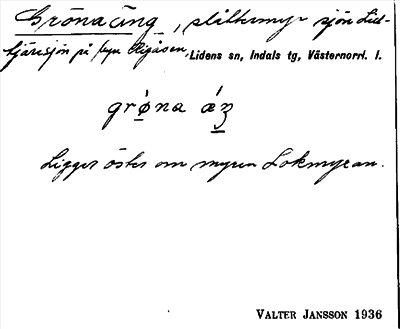 Grönaäng, slåttmyr sjön Lill-
tjärnsjön på byn Bigåsen, Lidens sn, Indals tg, Västernorrl. l.
grǿna ǽŋ
Ligger öster om myren Lokmyran.
VALTER JANSSON 1936